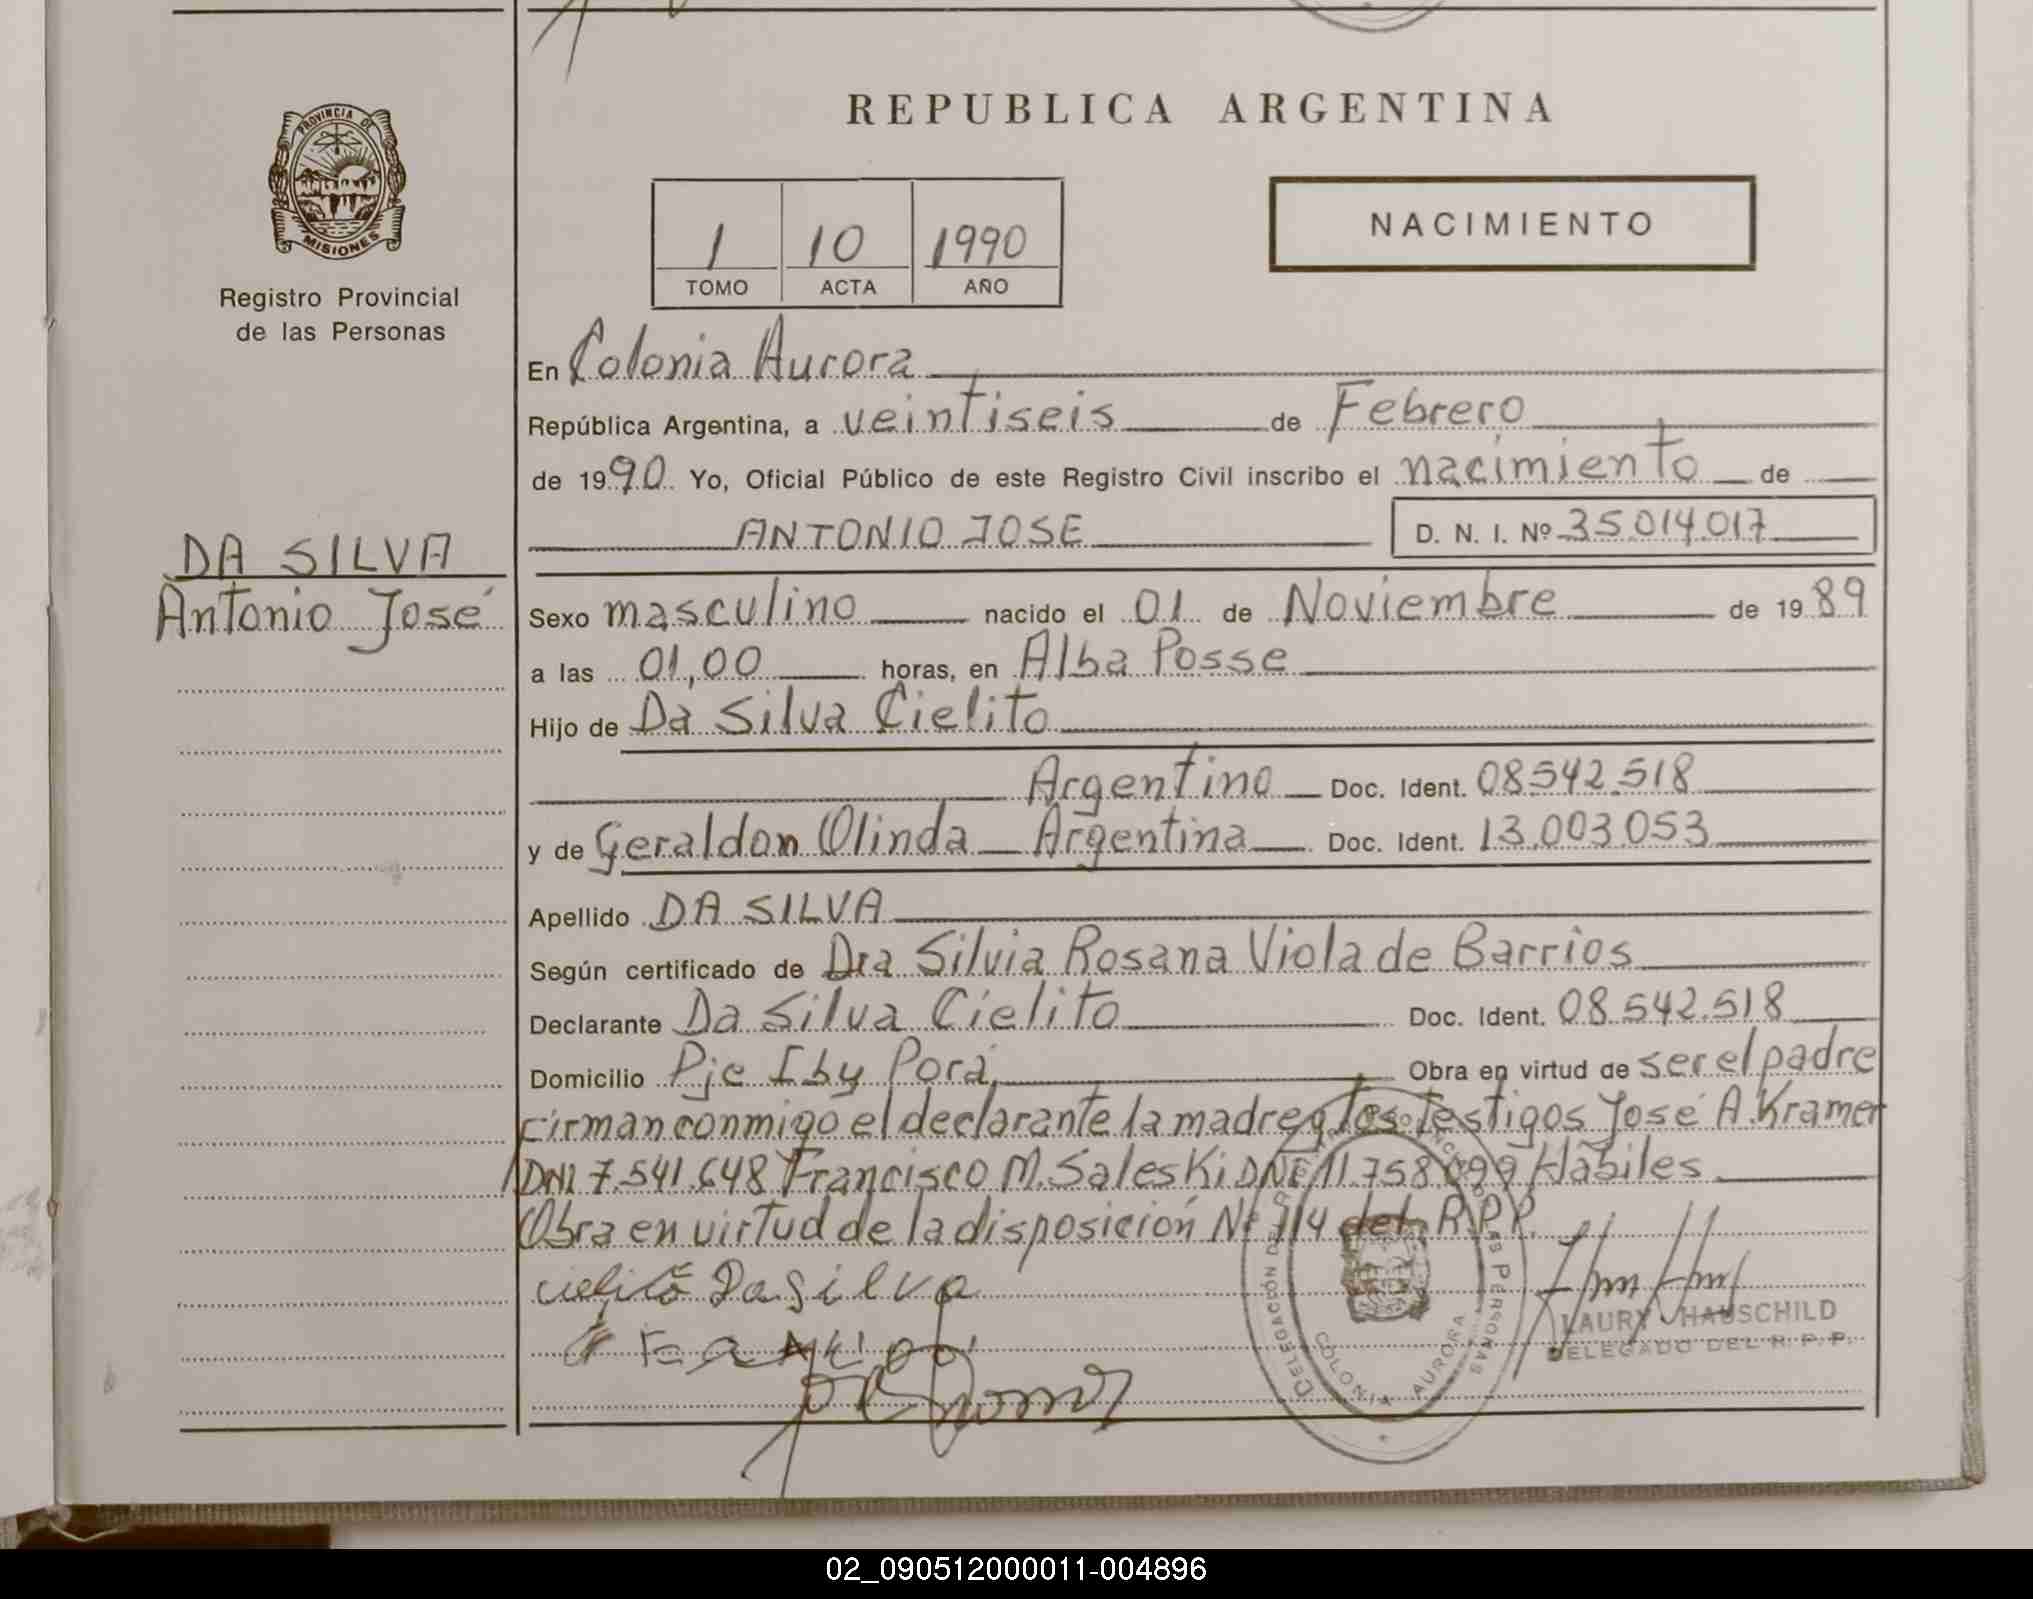 REPUBLICA ARGENTINA
PROVINCIA DE
MISIONES
Registro Provincial
de las Personas
1 10 1990
TOMO ACTA AÑO
NACIMIENTO
En Colonia Aurora
República Argentina, a veintiseis de Febrero
de 1990 Yo, Oficial Público de este Registro Civil inscribo el nacimiento de
ANTONIO JOSE D. N. I. Nº 35.014.017
DA SILVA
Antonio José
Sexo masculino nacido el 01 de Noviembre de 1989
a las 01,00 horas, en Alba Posse
Hijo de Da Silva Cielito
Argentino Doc. Ident. 08.542.518
y de Geraldon Olinda Argentina Doc. Ident. 13.003.053
Apellido DA SILVA
Según certificado de Dra Silvia Rosana Viola de Barrios
Declarante Da Silva Cielito Doc. Ident. 08.542.518
Domicilio Pje Iby Porá, Obra en virtud de ser el padre
Firman conmigo el declarante la madre y los Testigos José A. Kramer
DNI 7.541.648 Francisco M. Saleski DNI 11.758.099 Hábiles
Obra en virtud de la disposición Nº 114 del R.P.P.
cielito Da Silva
LAURY HAUSCHILD
DELEGADO DEL R.P.P.
DELEGACIÓN DEL PERSONAS
COLONIA AURORA
02_090512000011-004896